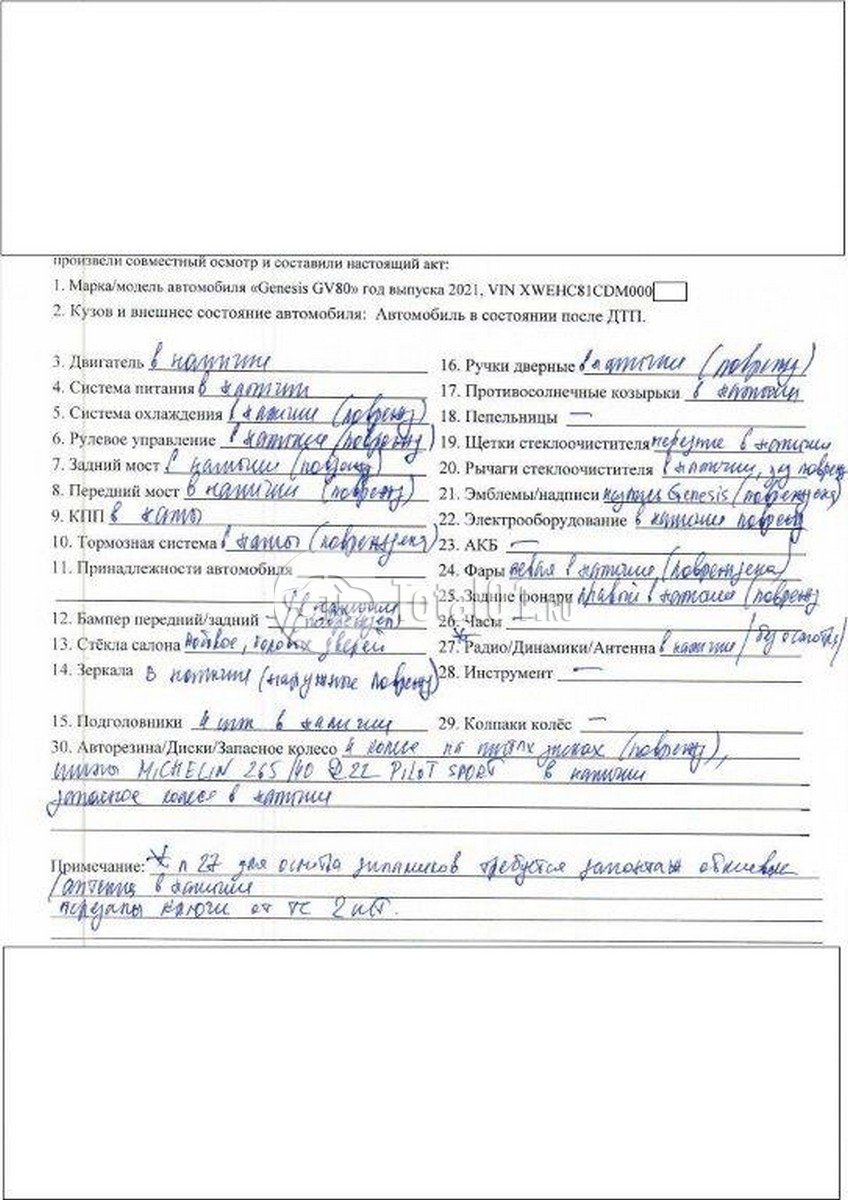 произвели совместный осмотр и составили настоящий акт:
1. Марка/модель автомобиля «Genesis GV80» год выпуска 2021, VIN XWEHC81CDM000
2. Кузов и внешнее состояние автомобиля: Автомобиль в состоянии после ДТП.
3. Двигатель в наличии
4. Система питания в наличии
5. Система охлаждения в наличии (поврежд)
6. Рулевое управление в наличии (поврежд)
7. Задний мост в наличии (поврежд)
8. Передний мост в наличии (поврежд)
9. КПП в налич
10. Тормозная система в налич (повреждена)
11. Принадлежности автомобиля
12. Бампер передний/задний в наличии (поврежден)
13. Стёкла салона лобовое, боковых дверей
14. Зеркала в наличии (наружные поврежд)
15. Подголовники 4 шт в наличии
16. Ручки дверные в наличии (поврежд)
17. Противосолнечные козырьки в наличии
18. Пепельницы —
19. Щетки стеклоочистителя передние в наличии
20. Рычаги стеклоочистителя в наличии, зад поврежд
21. Эмблемы/надписи Genesis (повреждена)
22. Электрооборудование в наличии поврежд
23. АКБ —
24. Фары левая в наличии (повреждена)
25. Задние фонари правый в наличии (поврежд)
26. Часы —
27. Радио/Динамики/Антенна в наличии (без осмотра)
28. Инструмент —
29. Колпаки колёс —
30. Авторезина/Диски/Запасное колесо 4 колеса на литых дисках (поврежд),
шины MICHELIN 265/40 R22 PILOT SPORT в наличии
запасное колесо в наличии
Примечание: * п 27 для осмотра динамиков требуется демонтаж обшивки
(антенна в наличии
переданы ключи от ТС 2 шт.
Total01.RU